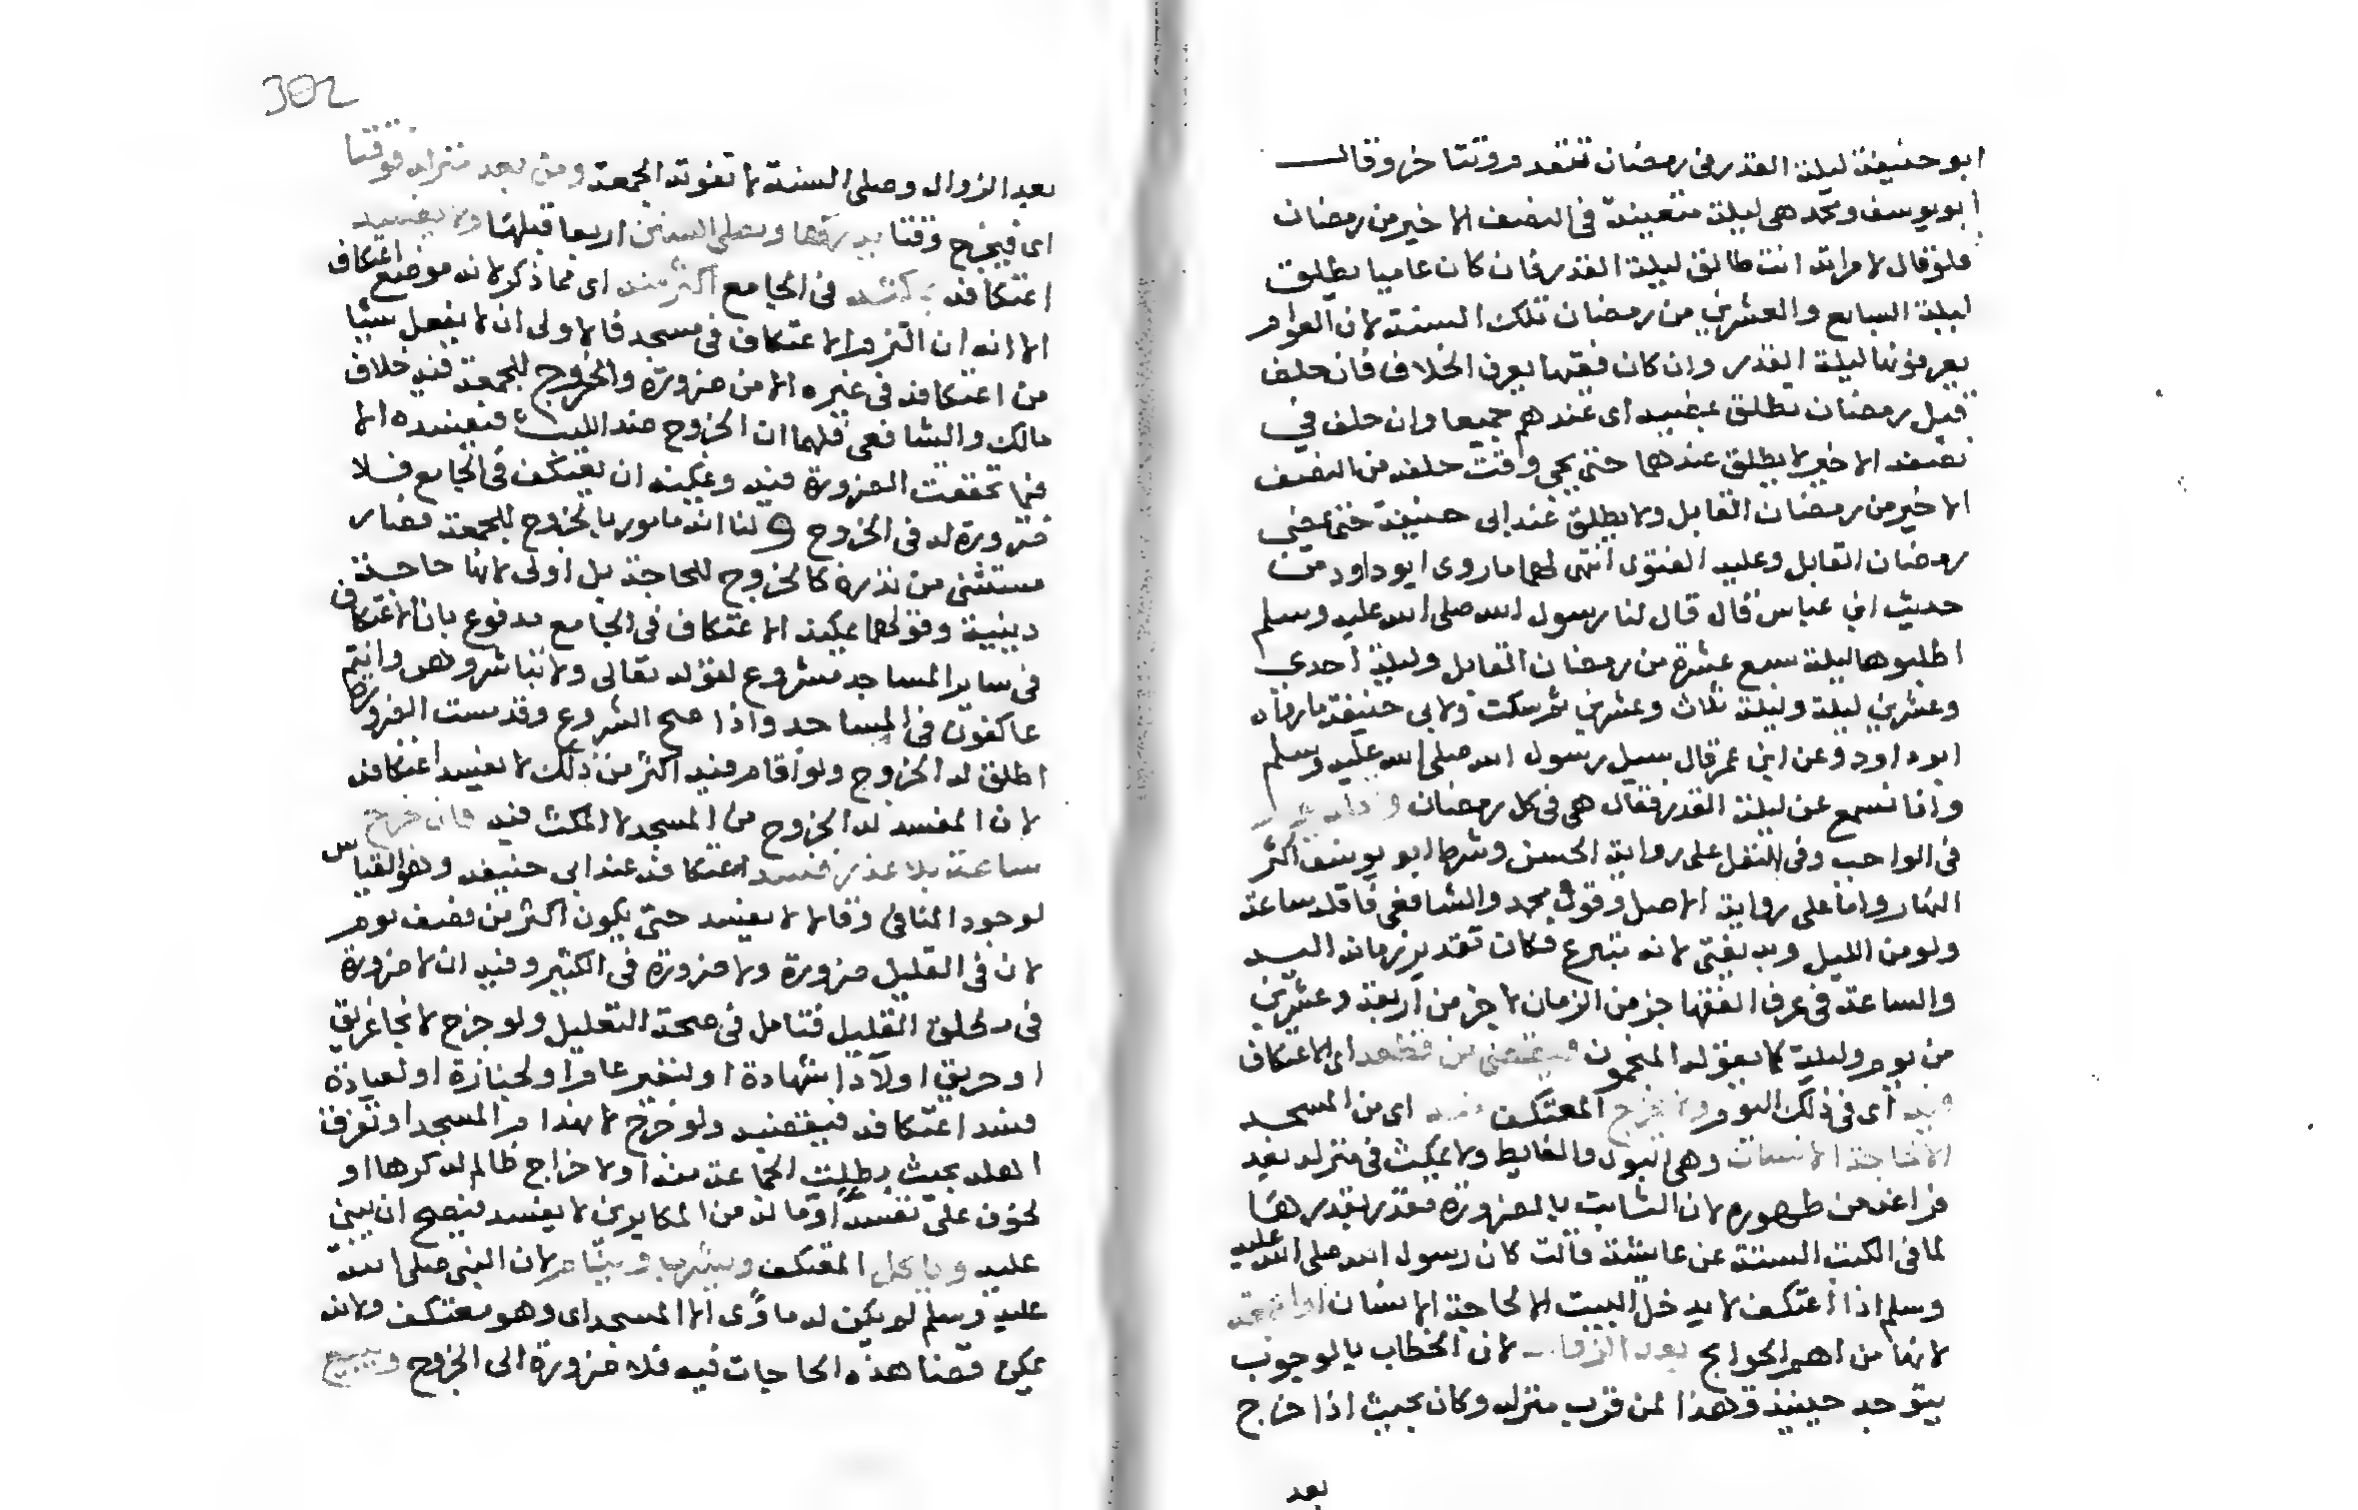 ابو حنيفة ليلة القدر فى رمضان تتقدم وتتاخر وقالـــ
ابو يوسف ومحمد هى ليلة متعينة فى النصف الاخير من رمضان
فلو قال لامراته انت طالق ليلة القدر فان كان عاميا تطلق
ليلة السابع والعشرين من رمضان تلك السنة لان العوام
يعرفونها ليلة القدر وان كان فقيها يعرف الخلاف فان حلف
قبل رمضان تطلق بمضيه اى عندهم جميعا وان حلف فى
نصفه الاخير لا يطلق عندهما حتى يجى وقت حلفه من النصف
الاخير من رمضان القابل ولا يطلق عند ابى حنيفة حتى يمضى
رمضان القابل وعليه الفتوى انتهى لهما ما روى ابو داود من
حديث ابن عباس قال قال لنا رسول الله صلى الله عليه وسلم
اطلبوها ليلة سبع عشرة من رمضان القابل وليلة احدى
وعشرين ليلة وليلة ثلاث وعشرين ثم سكت ولابى حنيفة ما رواه
ابو داود وعن ابن عمر قال سيل رسول الله صلى الله عليه وسلم
وانا نسمع عن ليلة القدر فقال هى فى كل رمضان
فى الواجب وفى النفل على رواية الحسن وشرط ابو يوسف اكثر
النهار واما على رواية الاصل وقول محمد والشافعى فاقله ساعة
ولو من الليل وبه يفتى لانه تبرع فكان تقدير زمانه اليه
والساعة فى عرف الفقها جز من الزمان لا جز من اربعة وعشرين
من يوم وليلة كما يقوله المنجمون فيقضى من قطعه اى الاعتكاف
فيه اى فى ذلك اليوم ولا يخرج المعتكف منه اى من المسجد
الا لحاجة الانسان وهى البول والغايط ولا يمكث فى منزله بعد
فراغه من طهوره لان الثابت بالضرورة مقدر بقدرها
لما فى الكتب الستة عن عايشة قالت كان رسول الله صلى الله عليه
وسلم اذا اعتكف لا يدخل البيت الا لحاجة الانسان او الجمعة
لانها من اهم الحوايج بعد الزوال لان الخطاب بالوجوب
يتوجه حينيذ وهذا لمن قرب منزله وكان بحيث اذا خرج
بعد
302
بعد الزوال وصلى السنة لا تفوته الجمعة ومن بعد منزله فوقتا
اى فيخرج وقتا يدركها ويصلى السنن اربعا قبلها ولا يفسد
اعتكافه بمكثه فى الجامع اكثر منه اى مما ذكر لانه موضع اعتكاف
الا انه ان التزم الاعتكاف فى مسجد فالاولى ان لا يفعل شيا
من اعتكافه فى غيره الا من ضرورة والخروج للجمعة فيه خلاف
مالك والشافعى فلهما ان الخروج ضد اللبث فيفسده الا
فيما تحققت الضرورة فيه ويمكنه ان يعتكف فى الجامع فلا
ضرورة له فى الخروج ولنا انه مامور بالخروج للجمعة فصار
مستثنى من نذره كالخروج للحاجة بل اولى لانها حاجة
دينية وقولهما يمكنه الاعتكاف فى الجامع مدفوع بان الاعتكاف
فى ساير المساجد مشروع لقوله تعالى ولا تباشروهن وانتم
عاكفون فى المساجد واذا صح الشروع وقد مست الضرورة
اطلق له الخروج ولو اقام فيه اكثر من ذلك لا يفسد اعتكافه
لان المفسد له الخروج من المسجد لا المكث فيه فان خرج
ساعة بلا عذر فسد اعتكافه عند ابى حنيفة وهو القياس
لوجود المنافى وقالا لا يفسد حتى يكون اكثر من نصف يوم
لان فى القليل ضرورة ولا ضرورة فى الكثير وفيه ان لا ضرورة
فى مطلق القليل فتامل فى صحة التعليل ولو خرج لانجا غريق
او حريق او لادا شهادة او لنفير عام او لجنازة او لعيادة
فسد اعتكافه فيقضيه ولو خرج لانهدام المسجد او تفرق
اهله بحيث بطلت الجماعة منه او لاخراج ظالم له كرها او
لخوف على نفسه او ماله من المكابرين لا يفسد فيصح ان يبنى
عليه وياكل المعتكف ويشرب وينام لان النبى صلى الله
عليه وسلم لم يكن له ماوى الا المسجد اى وهو معتكف ولانه
يمكن قضا هذه الحاجات فيه فلا ضرورة الى الخروج ويبيع